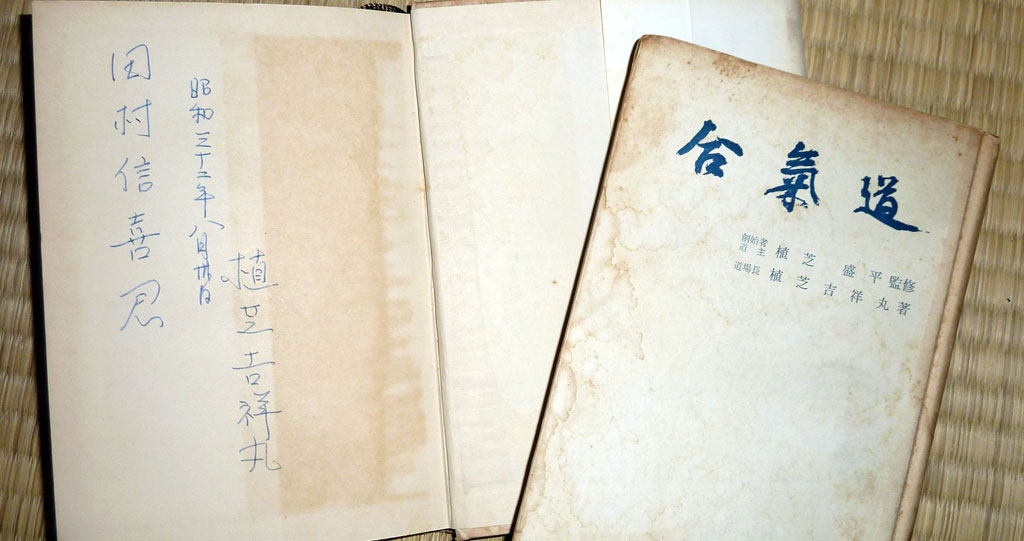 田村信喜君
昭和三十二年八月廿日
植芝吉祥丸
合氣道
創始者
道主 植芝盛平監修
道場長 植芝吉祥丸著